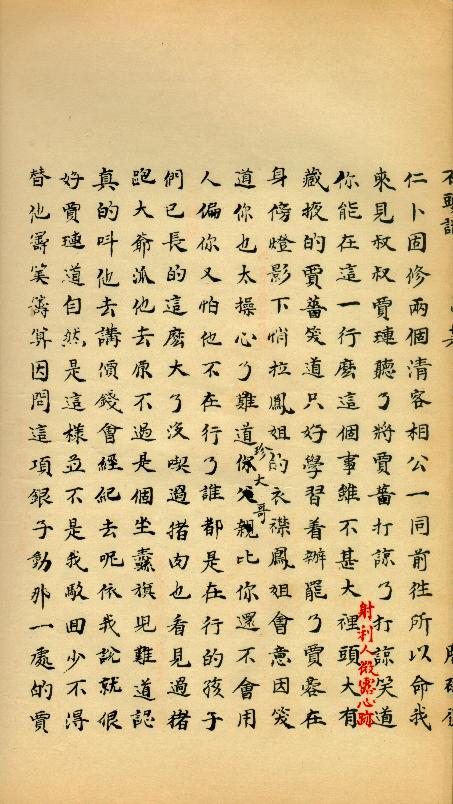 仁卜固修兩個清客相公一同前徃所以命我
來見叔叔賈璉聽了將賈薔打諒了打諒笑道
你能在這一行庅這個事雖不甚大裡頭大有
射利人微露心跡
藏掖的賈薔笑道只好學習着辦罷了賈蓉在
身傍燈影下悄拉鳳姐的衣襟鳳姐會意因笑
道你也太操心了難道你父親比你還不會用
珍大哥
人偏你又怕他不在行了誰都是在行的孩子
們已長的這麽大了沒喫過猪肉也看見過猪
跑大爺派他去原不過是個坐纛旗兒難道認
真的呌他去講價錢會經紀去呢依我說就很
好賈璉道自然是這樣並不是我駁囬少不得
替他籌算籌算因問這項銀子動那一處的賈